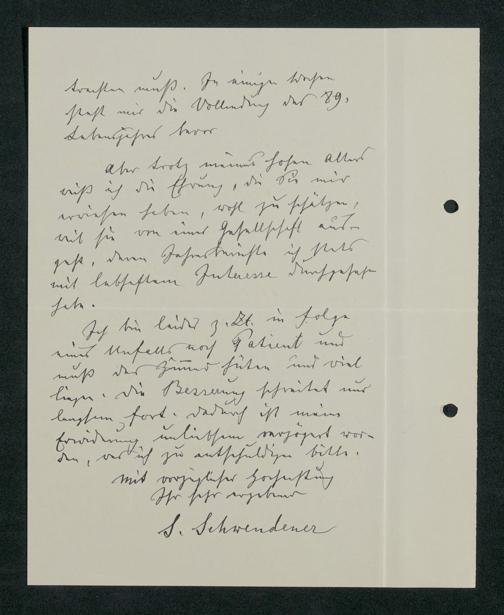 trachten muß. In einigen Wochen
steht mir die Vollendung des 79.
Lebensjahres bevor
Aber trotz meines hohen Alters
weiß ich die Ehrung, die Sie mir
erwiesen haben, wohl zu schätzen,
weil sie von einer Gesellschaft aus-
geht, deren Jahresberichte ich stets
mit lebhaftem Interesse durchgesehen
habe.
Ich bin leider z. Zt. in folge
eines Unfalls noch Patient und
muß das Zimmer hüten und viel
liegen. Die Besserung schreitet nur
langsam fort. Dadurch ist meine
Erwiderung unliebsam verzögert wor-
den, was ich zu entschuldigen bitte.
Mit vorzüglicher Hochachtung
Ihr sehr ergebener
S. Schwendener